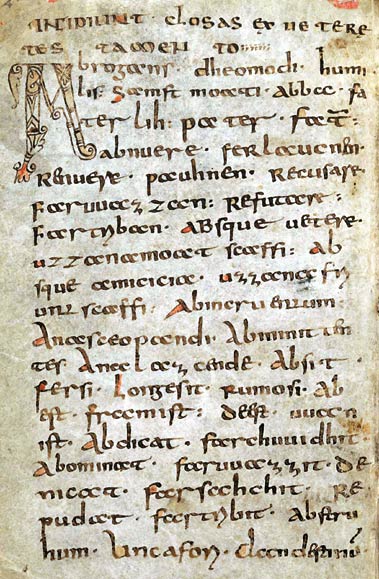 INCIPIUNT CLOSAS EX UETERE
TES TAMEN TO
Abrogans · dheomodi · humi
lis · samft moati · abba · fa
ter lih · pater · fat̄
abnuere · ferlaucnen
Renuere · pauhnen · Recusare
faruuazzan · Refutare
fartriban · absque uetere
uzzana moat scaffi · Ab
sque amicicia · uzzana fri
unt scaffi · Abincruentum
Anascaopandi · Abiminiten
tes Anaclazende · Absit ·
fersi · Longe sit · rumo si · Ab
est · fram ist · deest · uuan
ist · Abdicat · farchuuidhit
Abominat · faruuazzit · de
negat · farsechchit · Re
pudat · fartribit · Abstru
sum · Uncafori · clandestinū